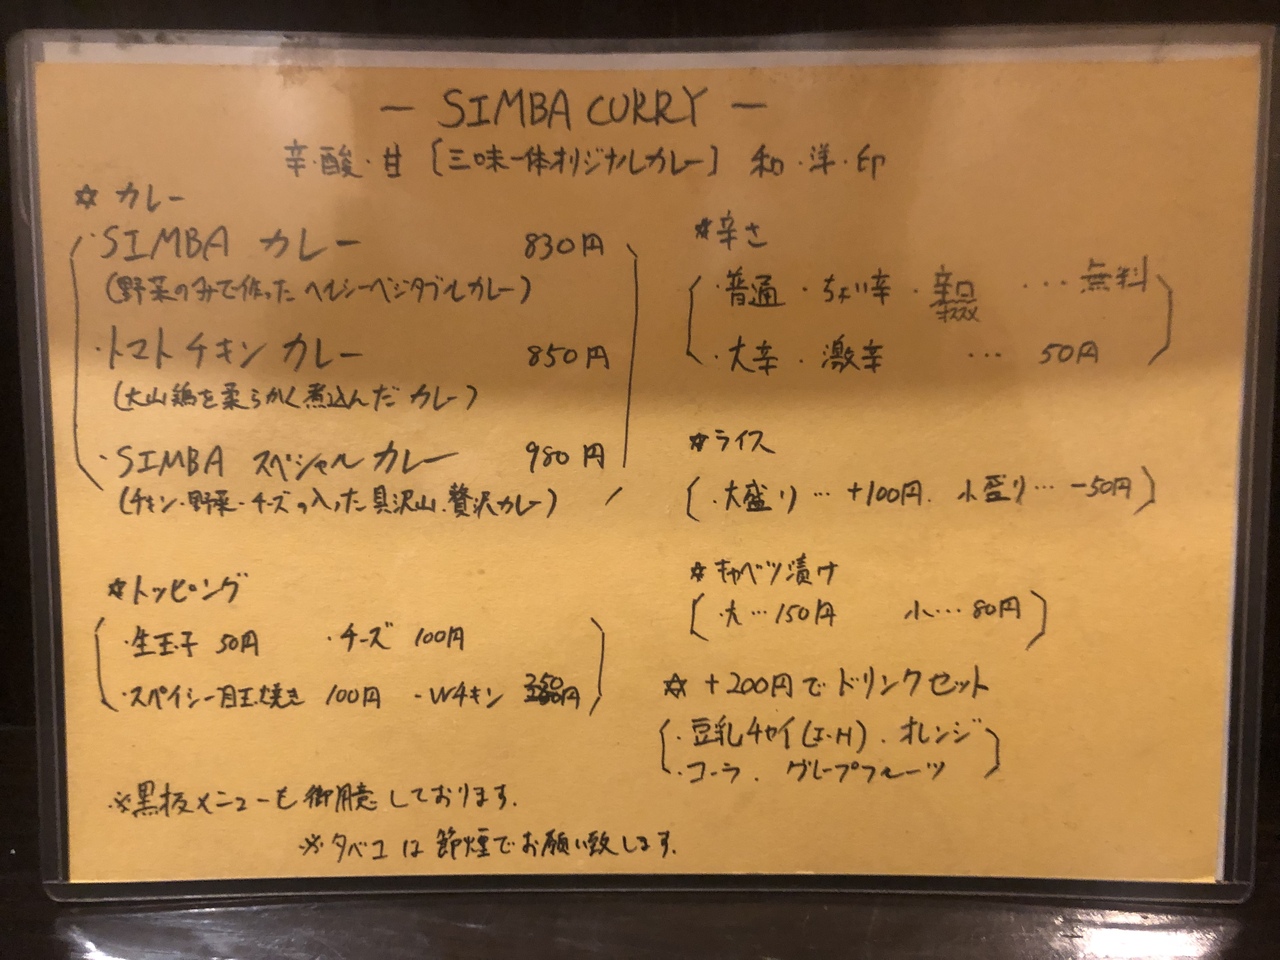 — SIMBA CURRY —
辛・酸・甘〔三味一体オリジナルカレー〕和・洋・印
☆ カレー
・SIMBA カレー 830円
(野菜のみで作った ヘルシーベジタブルカレー)
・トマトチキンカレー 850円
(大山鶏を柔らかく煮込んだカレー)
・SIMBA スペシャルカレー 980円
(チキン・野菜・チーズの入った具沢山、贅沢カレー)
☆トッピング
・生玉子 50円 ・チーズ 100円
・スペイシー目玉焼き 100円 ・Wチキン 250円
※黒板メニューも御用意しております。
※タバコは節煙でお願い致します。
☆辛さ
・普通 ・ちょい辛 ・辛口 … 無料
オススメ
・大辛・激辛 … 50円
☆ライス
・大盛り … +100円. 小盛り … -50円
☆キャベツ漬け
・大 … 150円 小 … 80円
☆ +200円でドリンクセット
・豆乳チャイ(I・H). オレンジ
・コーラ. グレープフルーツ